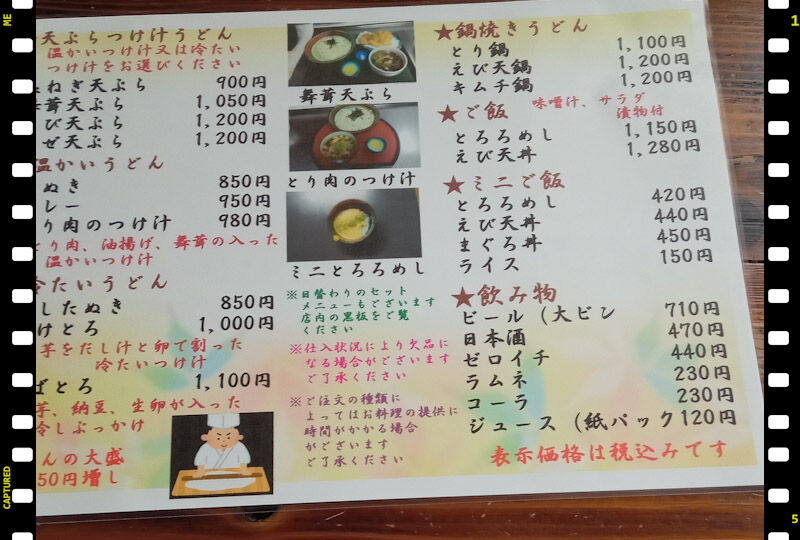 天ぷらつけ汁うどん
温かいつけ汁又は冷たい
つけ汁をお選びください
ねぎ天ぷら 900円
茸天ぷら 1,050円
び天ぷら 1,200円
ぜ天ぷら 1,200円
温かいうどん
ぬき 850円
レー 950円
り肉のつけ汁 980円
とり肉、油揚げ、舞茸の入った
温かいつけ汁
冷たいうどん
したぬき 850円
けとろ 1,000円
芋をだし汁と卵で割った
冷たいつけ汁
ばとろ 1,100円
芋、納豆、生卵が入った
冷しぶっかけ
んの大盛
50円増し
舞茸天ぷら
とり肉のつけ汁
ミニとろろめし
※日替わりのセット
メニューもございます
店内の黒板をご覧
ください
※仕入状況により欠品に
なる場合がございます
ご了承ください
※ご注文の種類に
よってはお料理の提供に
時間がかかる場合
がございます
ご了承ください
★鍋焼きうどん
とり鍋 1,100円
えび天鍋 1,200円
キムチ鍋 1,200円
★ご飯 味噌汁、サラダ
漬物付
とろろめし 1,150円
えび天丼 1,280円
★ミニご飯
とろろめし 420円
えび天丼 440円
まぐろ丼 450円
ライス 150円
★飲み物
ビール(大ビン 710円
日本酒 470円
ゼロイチ 440円
ラムネ 230円
コーラ 230円
ジュース(紙パック 120円
表示価格は税込みです
ME
CAPTURED
1
5